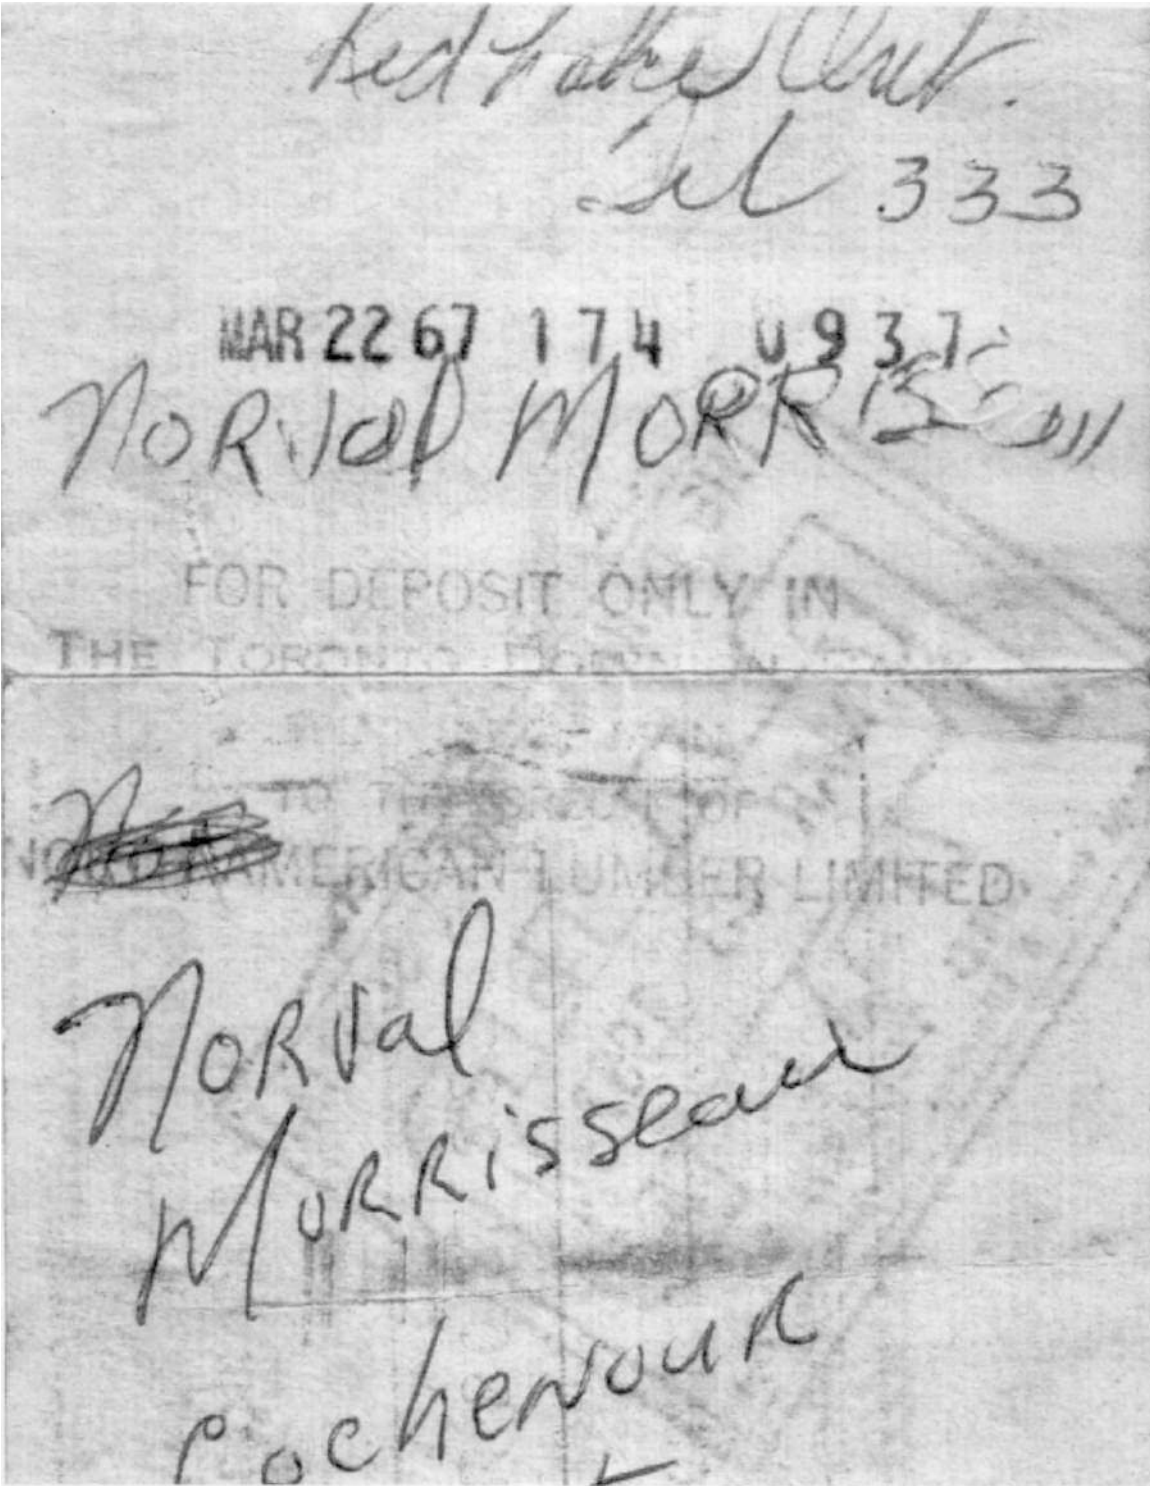 Red Lake Ont.
Tel 333
MAR 22 67 174 0937
NORVal MORRIS
FOR DEPOSIT ONLY IN
THE TORONTO DOMINION
TO THE ORDER OF
AMERICAN LUMBER LIMITED
NORVal
MORRisseau
Cochenour